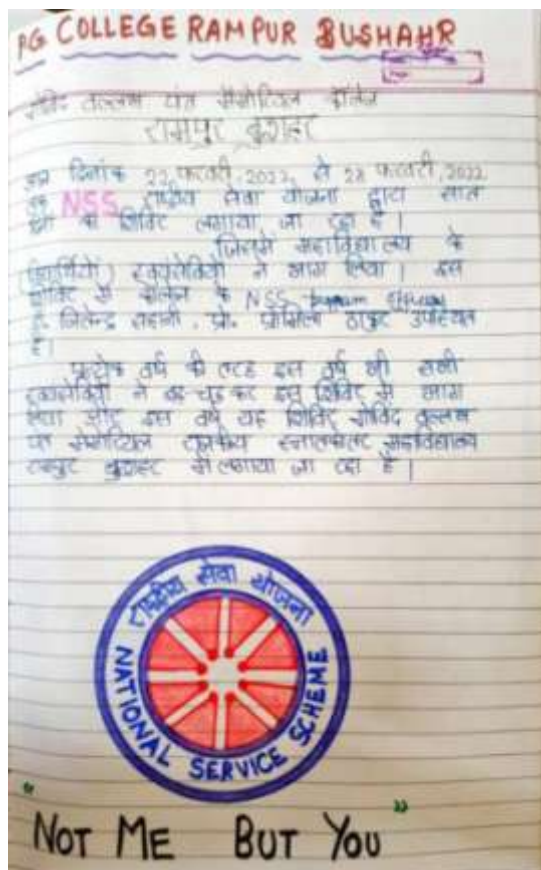 PG COLLEGE RAMPUR BUSHAHR
गोविंद वल्लभ पंत मेमोरियल कॉलेज
रामपुर बुशहर
आज दिनांक 22 फरवरी, 2022, से 28 फरवरी, 2022
तक NSS राष्ट्रीय सेवा योजना द्वारा सात
का शिविर लगाया जा रहा है।
जिसमें महाविद्यालय के
(विद्यार्थियों) स्वयंसेवियों ने भाग लिया। इस
शिविर में कॉलेज के NSS
जितेन्द्र साहनी, प्रो. प्रोमिला ठाकुर उपस्थित
है।
प्रत्येक वर्ष की तरह इस वर्ष भी सभी
स्वयंसेवियों ने बढ़-चढ़ कर इस शिविर में भाग
लिया और इस वर्ष यह शिविर गोविंद वल्लभ
पंत मेमोरियल राजकीय स्नातकोत्तर महाविद्यालय
रामपुर बुशहर में लगाया जा रहा है।
राष्ट्रीय सेवा योजना
NATIONAL SERVICE SCHEME
"NOT ME BUT YOU"